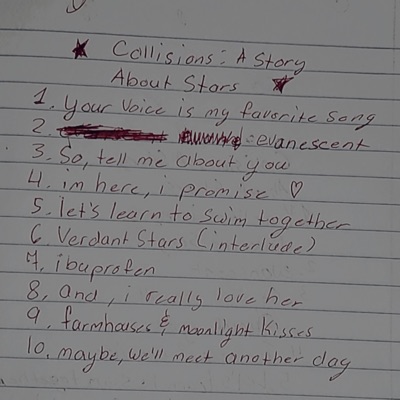 Collisions: A Story
About Stars
1. Your Voice is my favorite song
2. : evanescent
3. So, tell me about you
4. im here, i promise ♡
5. let's learn to swim together
6. Verdant Stars (interlude)
7. ibuprofen
8. and, i really love her
9. farmhouses & moonlight kisses
10. maybe, we'll meet another day